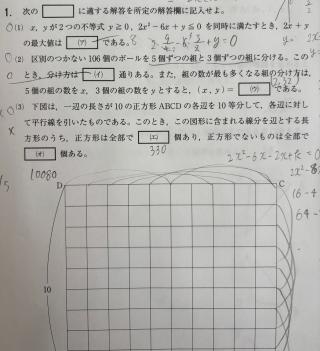 1. 次の□に適する解答を所定の解答欄に記入せよ。
(1) x, yが2つの不等式 y≧0, 2x²-6x+y≦0 を同時に満たすとき, 2x+y
の最大値は (ア) である。 8
(2) 区別のつかない106個のボールを5個ずつの組と3個ずつの組に分ける。この
とき, 分け方は (イ) 通りある。また, 組の数が最も多くなる組の分け方は,
5個の組の数をx, 3個の組の数をyとすると, (x, y)= (ウ) である。
(3) 下図は, 一辺の長さが10の正方形ABCDの各辺を10等分して, 各辺に対し
て平行線を引いたものである。このとき, この図形に含まれる線分を辺とする長
方形のうち, 正方形は全部で (エ) 個あり, 正方形でないものは全部で
(オ) 個ある。
330
10080
D
C
10